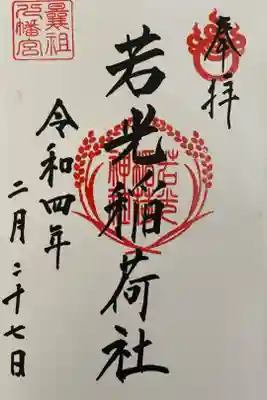 奉拝
若光稲荷社
令和四年
二月二十七日
曩祖
八幡宮